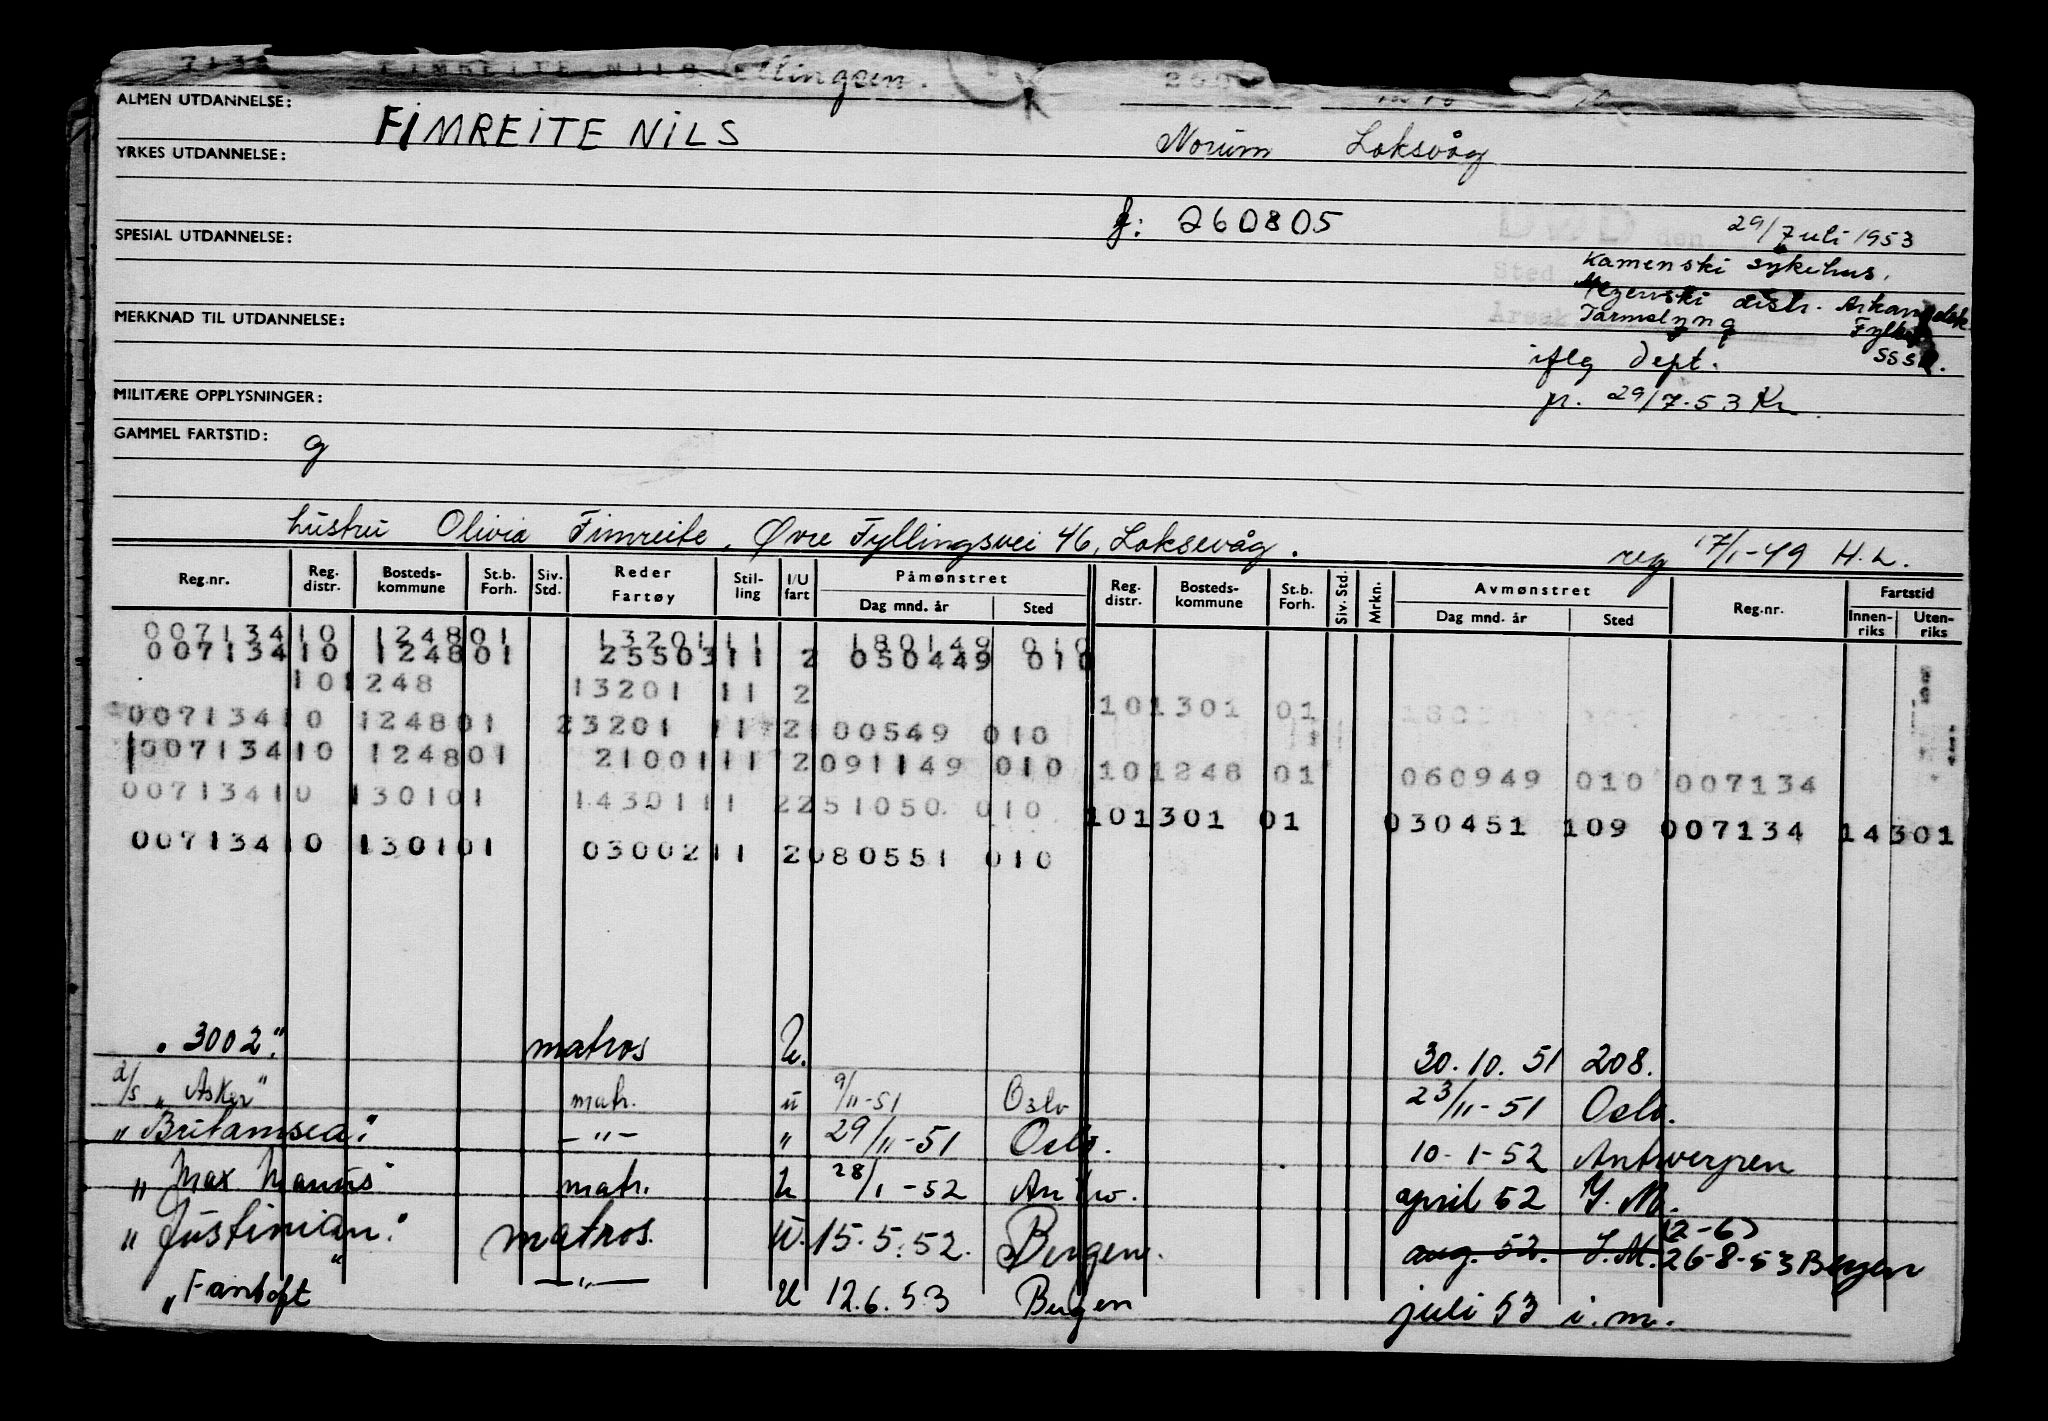 FIMREITE NILS Ellingsen.
ALMEN UTDANNELSE:
FIMREITE NILS Norum Loksvåg
YRKES UTDANNELSE:
f: 260805
SPESIAL UTDANNELSE:
DØD den 29/Juli 1953
Sted Kamenski sykehus,
Mezenski distr. Arkangelsk
Årsak Tarmslyng Fylke
SSSR.
MERKNAD TIL UTDANNELSE:
iflg Dept.
pr. 29/7-53 Kr
MILITÆRE OPPLYSNINGER:
GAMMEL FARTSTID: g
hustru Olivia Fimreite, Øvre Fyllingsvei 46, Loksevåg. reg 17/1-49 H.L.
Reg.nr. Reg. distr. Bosteds-kommune St.b. Forh. Siv. Std. Reder Fartøy Stil-ling I/U fart Påmønstret Dag mnd. år Sted Reg. distr. Bosteds-kommune St.b. Forh. Siv. Std. Mrkn. Avmønstret Dag mnd. år Sted Reg.nr. Fartstid Innen-riks Uten-riks
007134 10 1248 01 13201 11 180149 010
007134 10 1248 01 25503 11 2 050449 010
10 1248 13201 11 2
10 1301 01
007134 10 1248 01 23201 11 2 100549 010
007134 10 1248 01 21001 11 2 091149 010
10 1248 01 060949 010 007134
007134 10 1301 01 14301 11 2 251050 010
10 1301 01 030451 109 007134 14301
007134 10 1301 01 03002 11 2 080551 010
"3002" matros U. 30.10.51 208.
d/s "Asker" matr. u 9/11-51 Oslo 23/11-51 Oslo.
" Britamsea" -"- " 29/11-51 Oslo. 10-1-52 Antwerpen
" Max Manus" matr. U 28/1-52 Antw. april 52 I.M.
" Justinian" matros. U. 15.5.52. Bergen. aug. 52. I.M. 26-8-53 Bergen
" Fantoft" -"- U 12.6.53 Bergen juli 53 i.m.